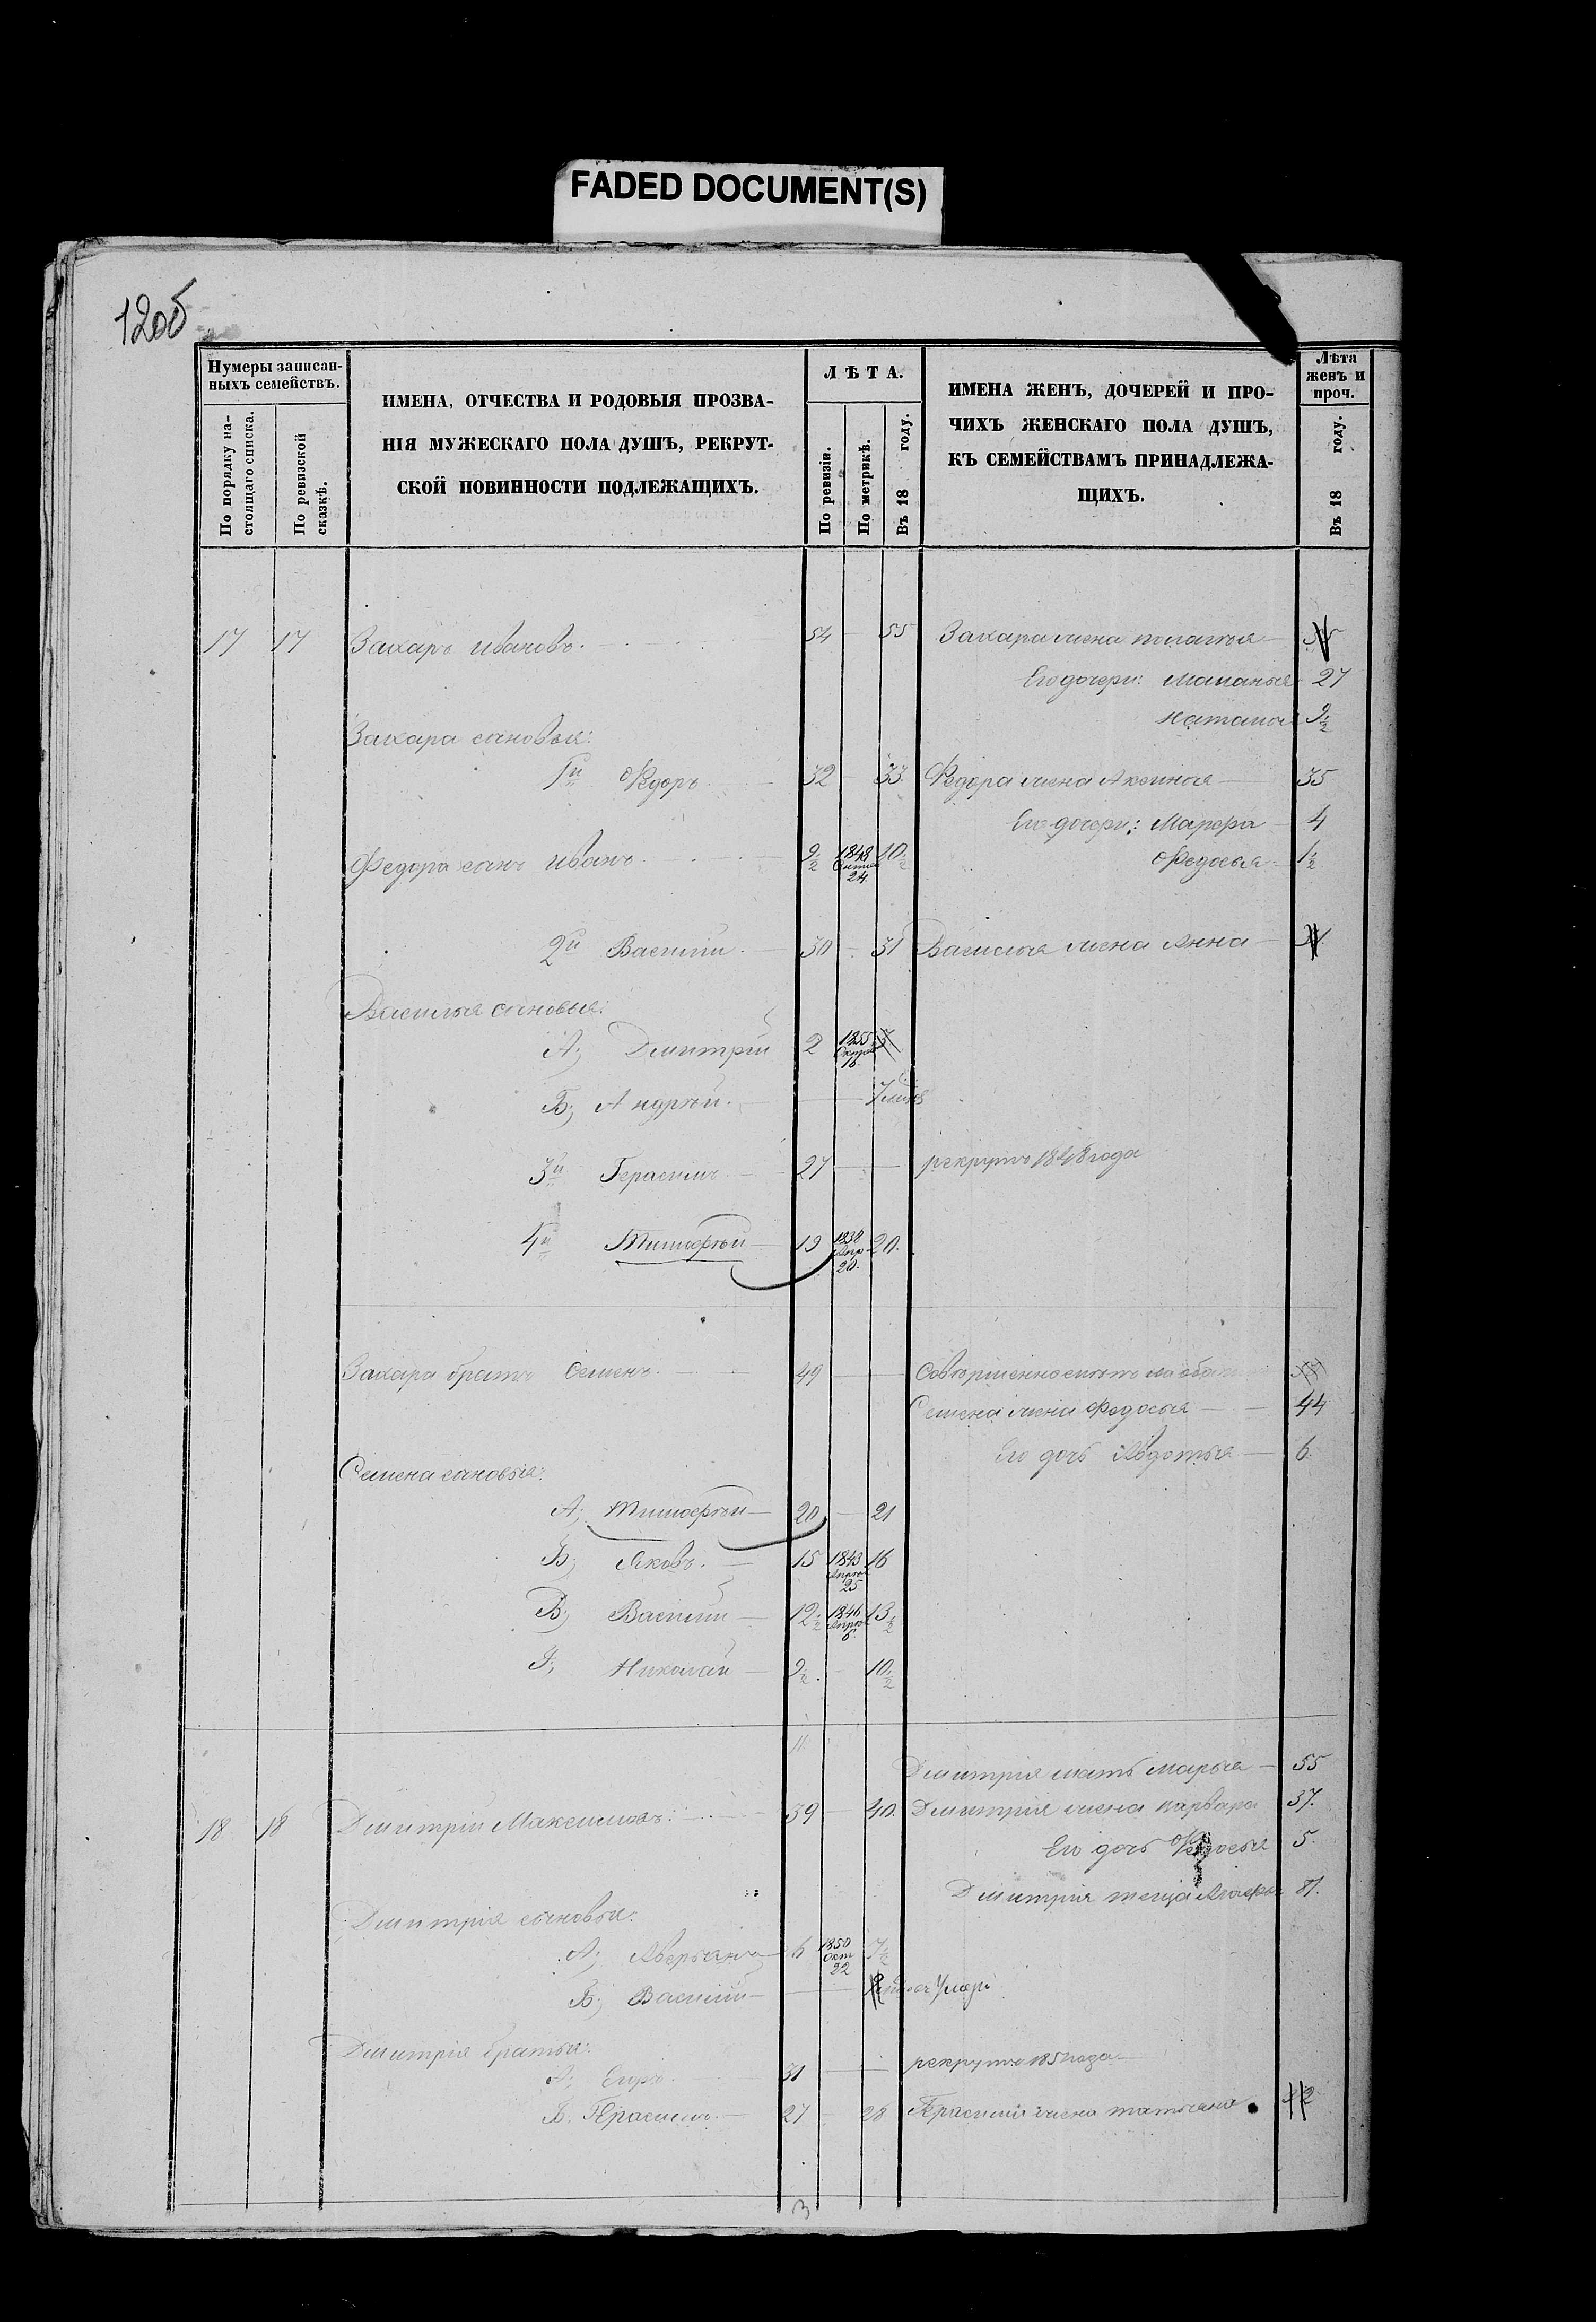 FADED DOCUMENT(S)
12об
Нумеры записан-
ныхъ семействъ.
По порядку на-
стоящаго списка.
По ревизской
сказкѣ.
ИМЕНА, ОТЧЕСТВА И РОДОВЫЯ ПРОЗВА-
НІЯ МУЖЕСКАГО ПОЛА ДУШЪ, РЕКРУТ-
СКОЙ ПОВИННОСТИ ПОДЛЕЖАЩИХЪ.
ЛѢТА.
По ревизіи.
По метрикѣ.
Въ 18 году.
ИМЕНА ЖЕНЪ, ДОЧЕРЕЙ И ПРО-
ЧИХЪ ЖЕНСКАГО ПОЛА ДУШЪ,
КЪ СЕМЕЙСТВАМЪ ПРИНАДЛЕЖА-
ЩИХЪ.
Лѣта
женъ и
проч.
Въ 18 году.
17 17 Захаръ Ивановъ. 54 — 55 Захара жена Палагея
Его дочери: Маланья 27
Наталья 9½
Захара сыновья:
1й Ѳедоръ 32 — 33 Ѳедора жена Аксинья 35
Его дочери: Марѳа 4
Федора сынъ Иванъ 9½ 1848 24. 10½ Ѳедосья 1½
2й Василій 30 — 31 Василья жена Анна
Василья сыновья:
А; Дмитрій 2 1855 Октяб 16. 3
Б; Андрей. 7
3й Герасимъ 27 — — рекрутъ 1848 года
4й Тимофѣй 19 1838 Апр 20. 20.
Захара братъ Семенъ. 49 — —
Семена жена Федосья 44
Его дочь Авдотья 6.
Семена сыновья:
А; Тимофѣй 20 — 21
Б; Яковъ. 15 1843 Апрѣл 25 16
В; Василій 12½ 1846 Апрѣл 6. 13½
Г; Николай 9½ 10½
Дмитрія мать Марья 55
18 18 Дмитрій Максимовъ. 39 — 40. Дмитрія жена Варвара 37.
Его дочь Ѳедосья 5.
Дмитрія теща 81.
Дмитрія сыновья:
А; Аверьянъ 6 1850 Окт 22 7½
Б; Василій
Дмитрія братья:
А; Егоръ. 31 — — рекрутъ года
Б. Герасимъ. 27 28 Герасима жена Татьяна
3